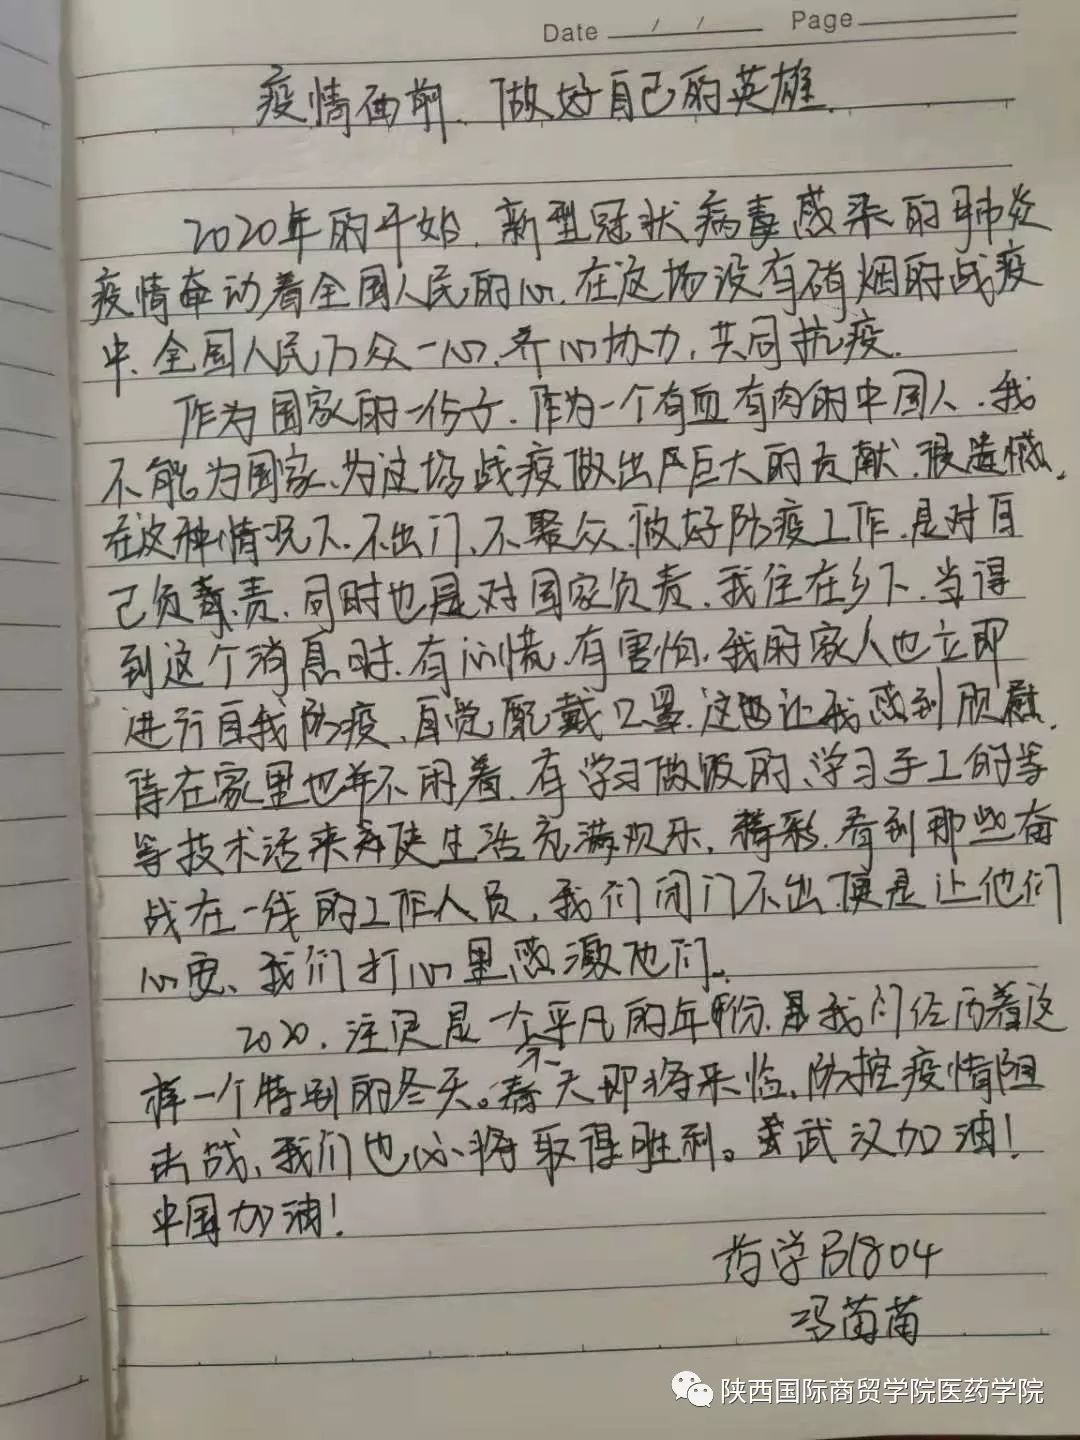 Date / / Page
疫情面前、做好自己的英雄
2020年的开始、新型冠状病毒感染的肺炎
疫情牵动着全国人民的心、在这场没有硝烟的战疫
中、全国人民万众一心、齐心协力，共同抗疫.
作为国家的一份子、作为一个有血有肉的中国人、我
不能为国家、为这场战疫做出严巨大的贡献、很遗憾、
在这种情况下、不出门、不聚众、做好防疫工作、是对自
己负责、同时也是对国家负责、我住在乡下、当得
到这个消息时、有心慌、有害怕、我的家人也立即
进行自我防疫、自觉配戴口罩、这也让我感到欣慰、
待在家里也并不闲着、有学习做饭的、学习手工的等
等技术活来使生活充满欢乐，精彩、看到那些奋
战在一线的工作人员，我们闭门不出、便是让他们
心安、我们打心里感激他们。
2020，注定是一个不平凡的年份、是我们经历着这
样一个特别的冬天。春天即将来临、防控疫情阻
击战、我们也必将取得胜利。武汉加油！
中国加油！
药学B1804
冯苗苗
陕西国际商贸学院医药学院